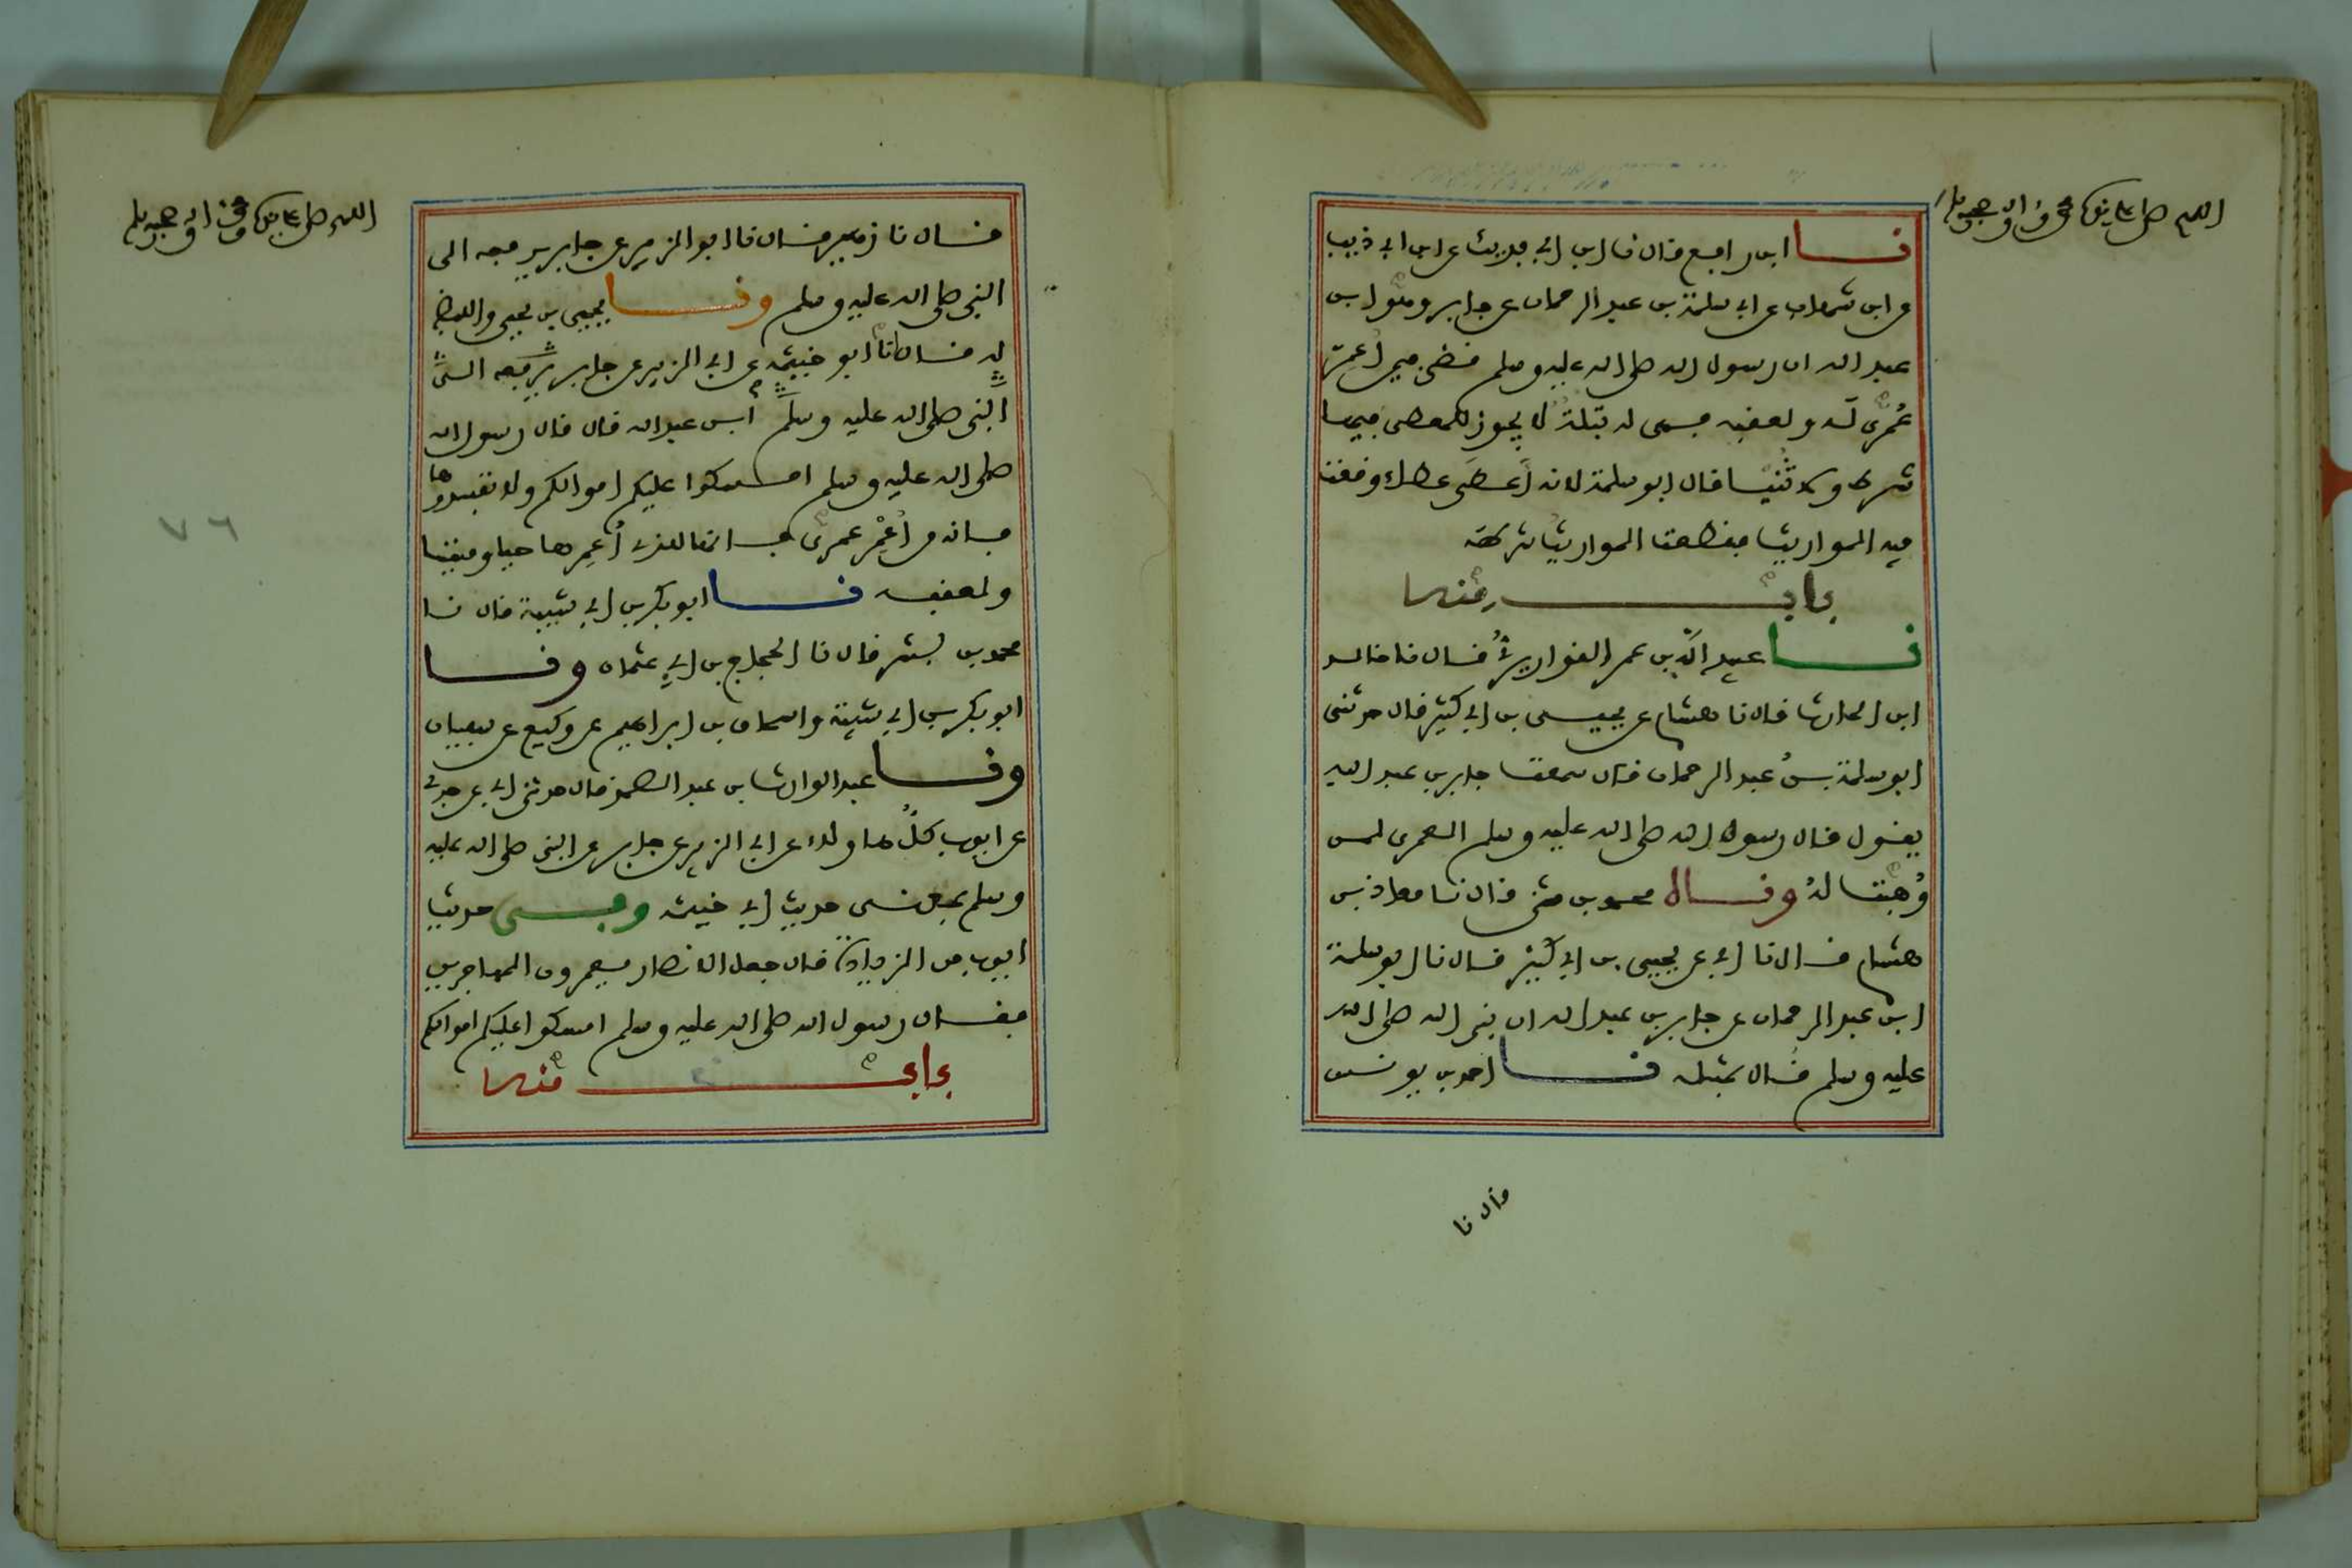 اللهم صل على نبيك محمد وءاله وصحبه وسلم
نا ابن رافع قال نا ابن ابي فديك عن ابن ابي ذيب
عن ابن شهاب عن ابي سلمة بن عبد الرحمان عن جابر وهو ابن
عبد الله ان رسول الله صلى الله عليه وسلم قضى فيمن اعمر
عمرى له ولعقبه فهي له بتلة لا يجوز للمعطي فيها
شرط ولا ثنيا قال ابو سلمة لانه اعطى عطاء وقعت
فيه المواريث فقطعت المواريث شرطه
باب منه
نا عبيد الله بن عمر القواريري قال نا خالد
ابن الحارث قال نا هشام عن يحيى بن ابي كثير قال حدثني
ابو سلمة بن عبد الرحمان قال سمعت جابر بن عبد الله
يقول قال رسول الله صلى الله عليه وسلم العمرى لمن
وهبت له ونا محمد بن مثنى قال نا معاذ بن
هشام قال نا ابي عن يحيى بن ابي كثير قال نا ابو سلمة
ابن عبد الرحمان عن جابر بن عبد الله ان نبي الله صلى الله
عليه وسلم قال بمثله نا احمد بن يونس
قال نا
اللهم صل على نبيك محمد وءاله وصحبه وسلم
قال نا زهير قال نا ابو الزبير عن جابر يرفعه الى
النبي صلى الله عليه وسلم ونا يحيى بن يحيى واللفظ
له قال انا ابو خيثمة عن ابي الزبير عن جابر يرفعه الى
النبي صلى الله عليه وسلم ابن عبد الله قال قال رسول الله
صلى الله عليه وسلم امسكوا عليكم اموالكم ولا تفسدوها
فانه من اعمر عمرى فانها للذي اعمرها حيا وميتا
ولعقبه نا ابو بكر بن ابي شيبة قال نا
محمد بن بشر قال نا الحجاج بن ابي عثمان ونا
ابو بكر بن ابي شيبة واسحاق بن ابراهيم عن وكيع عن سفيان
ونا عبد الوارث بن عبد الصمد قال حدثني ابي عن جدي
عن ايوب كل هاولاء عن ابي الزبير عن جابر عن النبي صلى الله عليه
وسلم بمعنى حديث ابي خيثمة وفي حديث
ايوب من الزيادة قال جعل الانصار يعمرون المهاجرين
فقال رسول الله صلى الله عليه وسلم امسكوا عليكم اموالكم
باب منه
٧٦